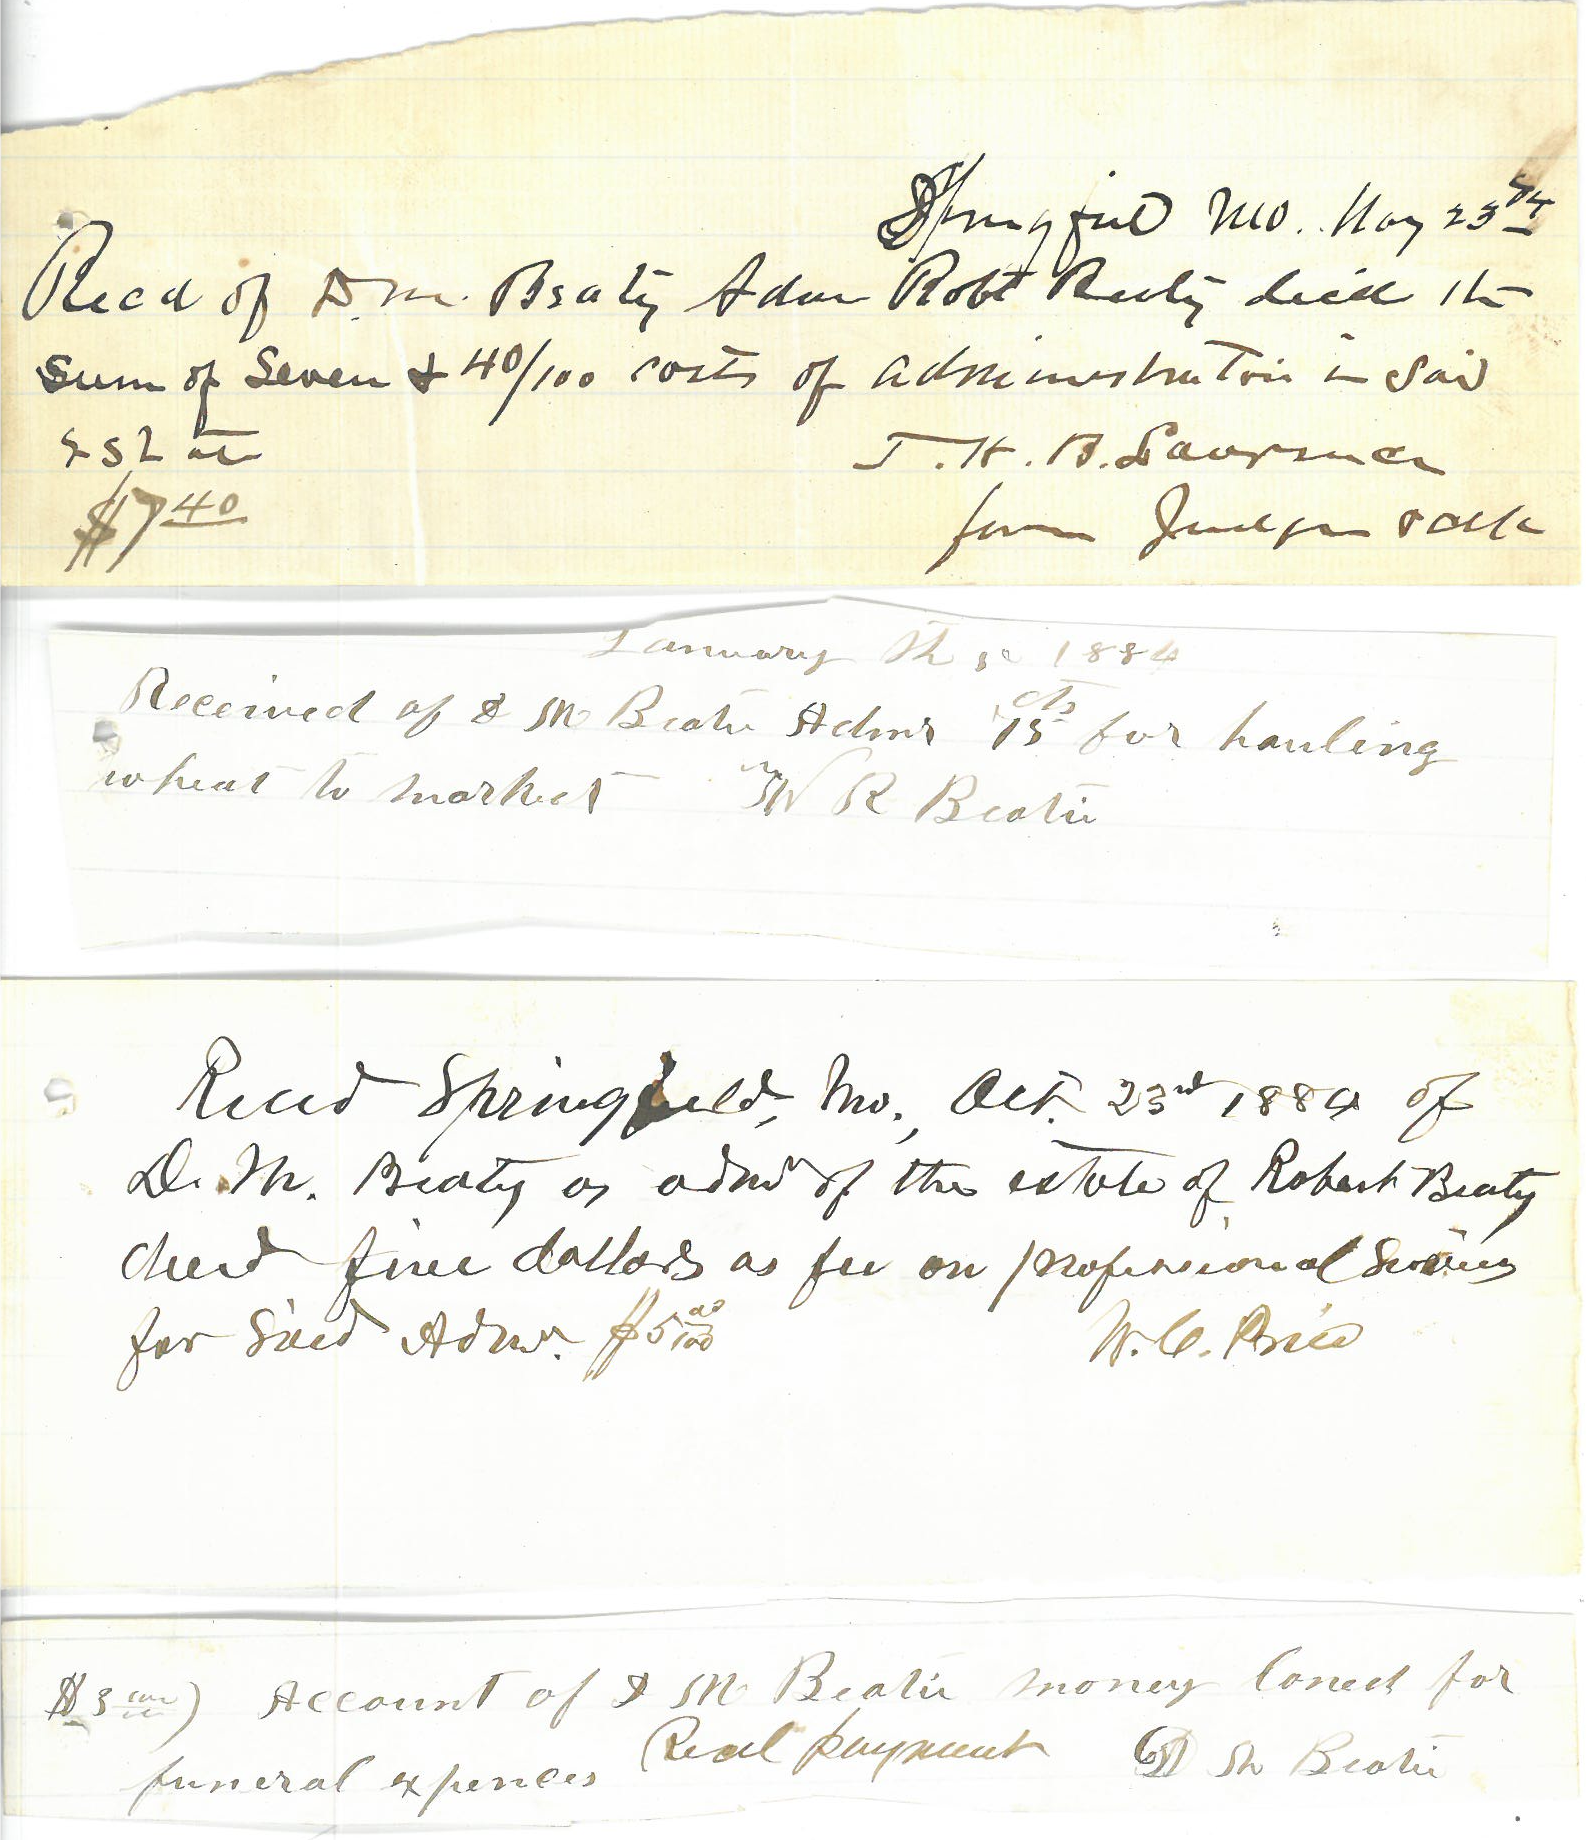 Springfield Mo. May 23rd 84
Recd of D. M. Beaty Admr Robt Beaty decd the
sum of Seven & 40/100 costs of administration in said
estate J. H. B. Lawrence
$7 40 former Judge &
January 1884
Received of D M Beatie Admr 75 cts for hauling
wheat to market W R Beatie
Recd Springfield, Mo., Oct. 23rd 1884 of
D. M. Beaty as admr of the estate of Robert Beaty
decd five dollars as fee on professional Services
for Said Admr. $5 00/100 W. C. Price
$3 Account of D M Beatie money loned for
funeral expences Recd payment D M Beatie